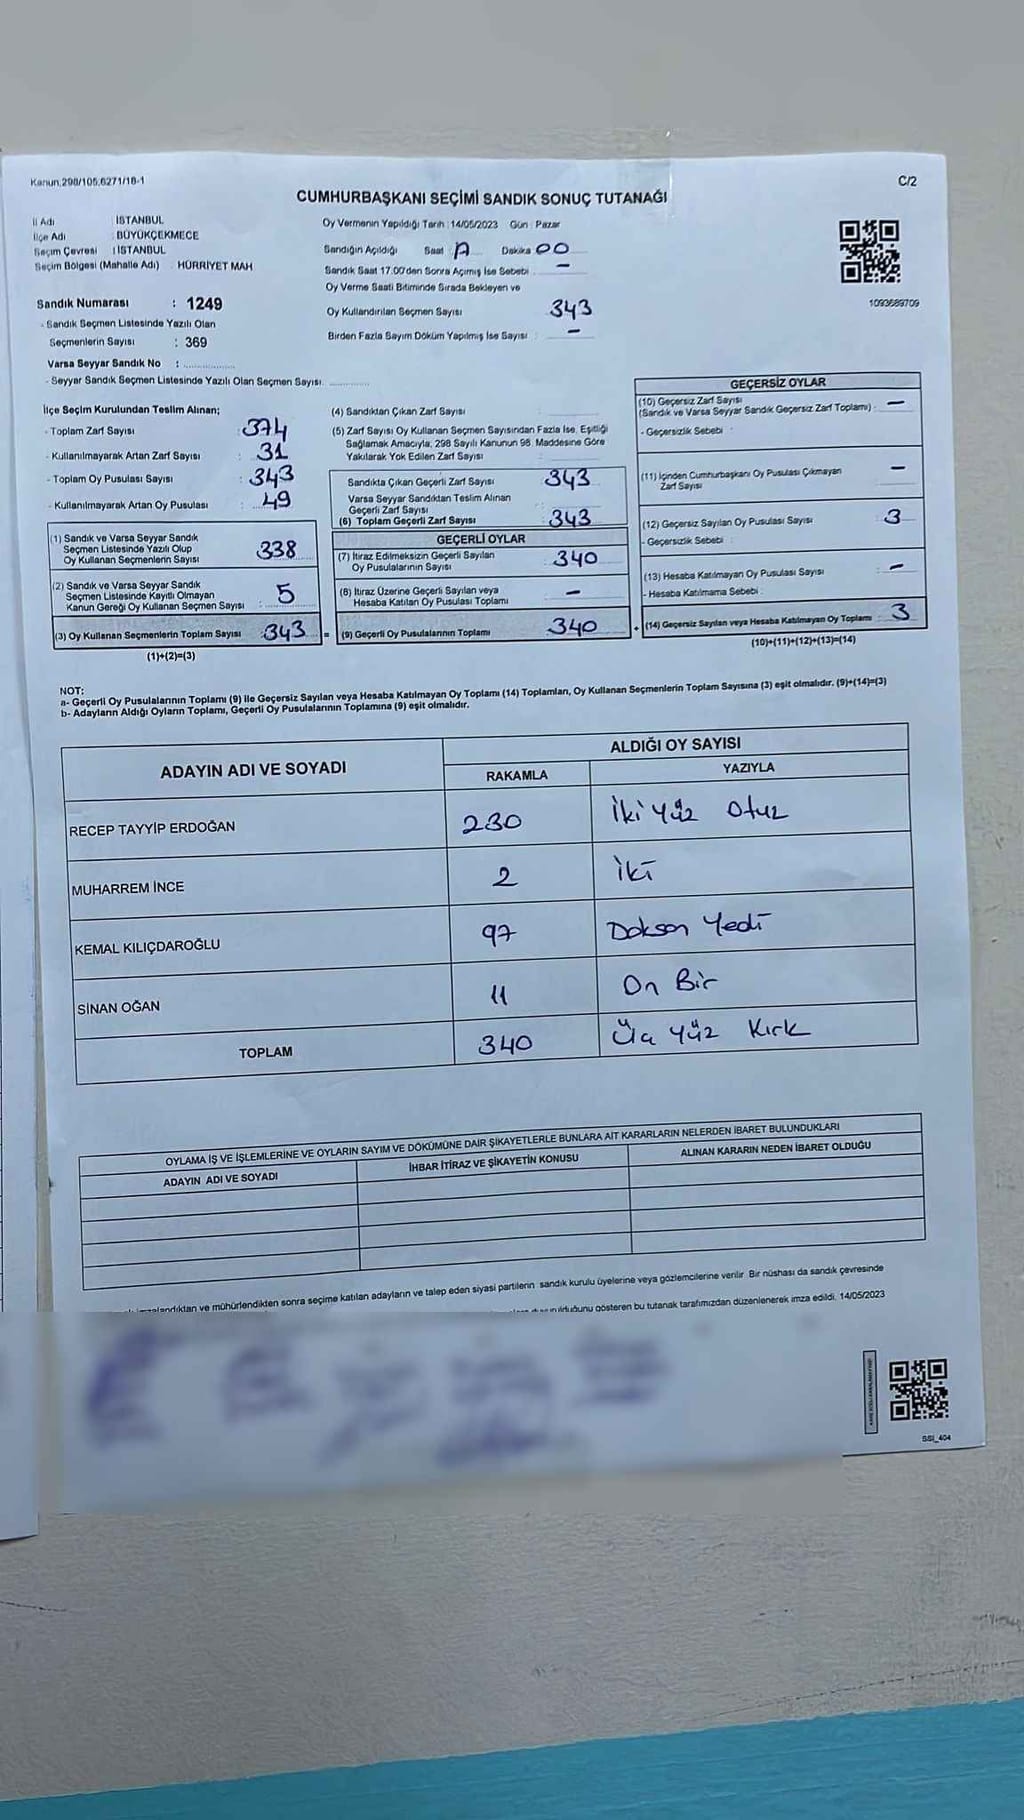 Kanun,298/105,6271/18-1
C/2
CUMHURBAŞKANI SEÇİMİ SANDIK SONUÇ TUTANAĞI
İl Adı : İSTANBUL
İlçe Adı : BÜYÜKÇEKMECE
Seçim Çevresi : İSTANBUL
Seçim Bölgesi (Mahalle Adı) : HÜRRİYET MAH
Sandık Numarası : 1249
- Sandık Seçmen Listesinde Yazılı Olan
Seçmenlerin Sayısı : 369
Varsa Seyyar Sandık No :
- Seyyar Sandık Seçmen Listesinde Yazılı Olan Seçmen Sayısı
Oy Vermenin Yapıldığı Tarih : 14/05/2023 Gün : Pazar
Sandığın Açıldığı Saat Dakika 00
Sandık Saat 17:00'den Sonra Açmış İse Sebebi : -
Oy Verme Saati Bitiminde Sırada Bekleyen ve
Oy Kullandırılan Seçmen Sayısı 343
Birden Fazla Sayım Döküm Yapılmış İse Sayısı : -
1093689709
İlçe Seçim Kurulundan Teslim Alınan;
- Toplam Zarf Sayısı : 374
- Kullanılmayarak Artan Zarf Sayısı : 31
- Toplam Oy Pusulası Sayısı : 343
- Kullanılmayarak Artan Oy Pusulası : 49
(1) Sandık ve Varsa Seyyar Sandık
Seçmen Listesinde Yazılı Olup
Oy Kullanan Seçmenlerin Sayısı 338
(2) Sandık ve Varsa Seyyar Sandık
Seçmen Listesinde Kayıtlı Olmayan
Kanun Gereği Oy Kullanan Seçmen Sayısı : 5
(3) Oy Kullanan Seçmenlerin Toplam Sayısı : 343
(1)+(2)=(3)
(4) Sandıktan Çıkan Zarf Sayısı
(5) Zarf Sayısı Oy Kullanan Seçmen Sayısından Fazla İse, Eşitliği
Sağlamak Amacıyla; 298 Sayılı Kanunun 98. Maddesine Göre
Yakılarak Yok Edilen Zarf Sayısı
Sandıkta Çıkan Geçerli Zarf Sayısı 343
Varsa Seyyar Sandıktan Teslim Alınan
Geçerli Zarf Sayısı
(6) Toplam Geçerli Zarf Sayısı : 343
GEÇERLİ OYLAR
(7) İtiraz Edilmeksizin Geçerli Sayılan
Oy Pusulalarının Sayısı : 340
(8) İtiraz Üzerine Geçerli Sayılan veya
Hesaba Katılan Oy Pusulası Toplamı : -
= (9) Geçerli Oy Pusulalarının Toplamı 340
GEÇERSİZ OYLAR
(10) Geçersiz Zarf Sayısı
(Sandık ve Varsa Seyyar Sandık Geçersiz Zarf Toplamı) : -
- Geçersizlik Sebebi :
(11) İçinden Cumhurbaşkanı Oy Pusulası Çıkmayan
Zarf Sayısı -
(12) Geçersiz Sayılan Oy Pusulası Sayısı : 3
- Geçersizlik Sebebi :
(13) Hesaba Katılmayan Oy Pusulası Sayısı : -
- Hesaba Katılmama Sebebi :
+ (14) Geçersiz Sayılan veya Hesaba Katılmayan Oy Toplamı : 3
(10)+(11)+(12)+(13)=(14)
NOT:
a- Geçerli Oy Pusulalarının Toplamı (9) ile Geçersiz Sayılan veya Hesaba Katılmayan Oy Toplamı (14) Toplamları, Oy Kullanan Seçmenlerin Toplam Sayısına (3) eşit olmalıdır. (9)+(14)=(3)
b- Adayların Aldığı Oyların Toplamı, Geçerli Oy Pusulalarının Toplamına (9) eşit olmalıdır.
ADAYIN ADI VE SOYADI
ALDIĞI OY SAYISI
RAKAMLA YAZIYLA
RECEP TAYYİP ERDOĞAN 230 İki Yüz Otuz
MUHARREM İNCE 2 İki
KEMAL KILIÇDAROĞLU 97 Doksan Yedi
SİNAN OĞAN 11 On Bir
TOPLAM 340 Üç Yüz Kırk
OYLAMA İŞ VE İŞLEMLERİNE VE OYLARIN SAYIM VE DÖKÜMÜNE DAİR ŞİKAYETLERLE BUNLARA AİT KARARLARIN NELERDEN İBARET BULUNDUKLARI
ADAYIN ADI VE SOYADI İHBAR İTİRAZ VE ŞİKAYETİN KONUSU ALINAN KARARIN NEDEN İBARET OLDUĞU
ve mühürlendikten sonra seçime katılan adayların ve talep eden siyasi partilerin sandık kurulu üyelerine veya gözlemcilerine verilir. Bir nüshası da sandık çevresinde
gösteren bu tutanak tarafımızdan düzenlenerek imza edildi. 14/05/2023
SSI_404